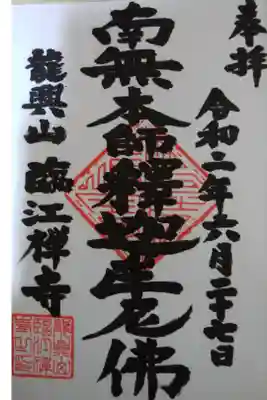 奉拝
令和二年六月二十七日
南無本師釋迦牟尼佛
龍興山 臨江禅寺